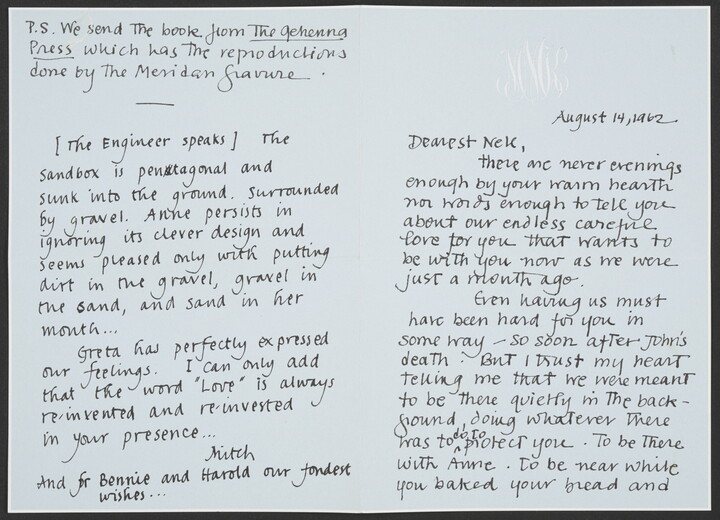 P.S. We send the book from The Gehenna
Press which has the reproductions
done by the Meridan Gravure.
[The Engineer speaks] The
sandbox is pentagonal and
sunk into the ground. Surrounded
by gravel. Anne persists in
ignoring its clever design and
seems pleased only with putting
dirt in the gravel, gravel in
the sand, and sand in her
mouth...
Greta has perfectly expressed
our feelings. I can only add
that the word "Love" is always
re-invented and re-invested
in your presence...
Mitch
And for Bennie and Harold our fondest
wishes...
August 14, 1962
Dearest Nell,
There are never evenings
enough by your warm hearth
nor words enough to tell you
about our endless careful
love for you that wants to
be with you now as we were
just a month ago.
Even having us must
have been hard for you in
some way – so soon after John's
death. But I trust my heart
telling me that we were meant
to be there quietly in the back-
ground, doing whatever there
was to do to protect you. To be there
with Anne. To be near while
you baked your bread and